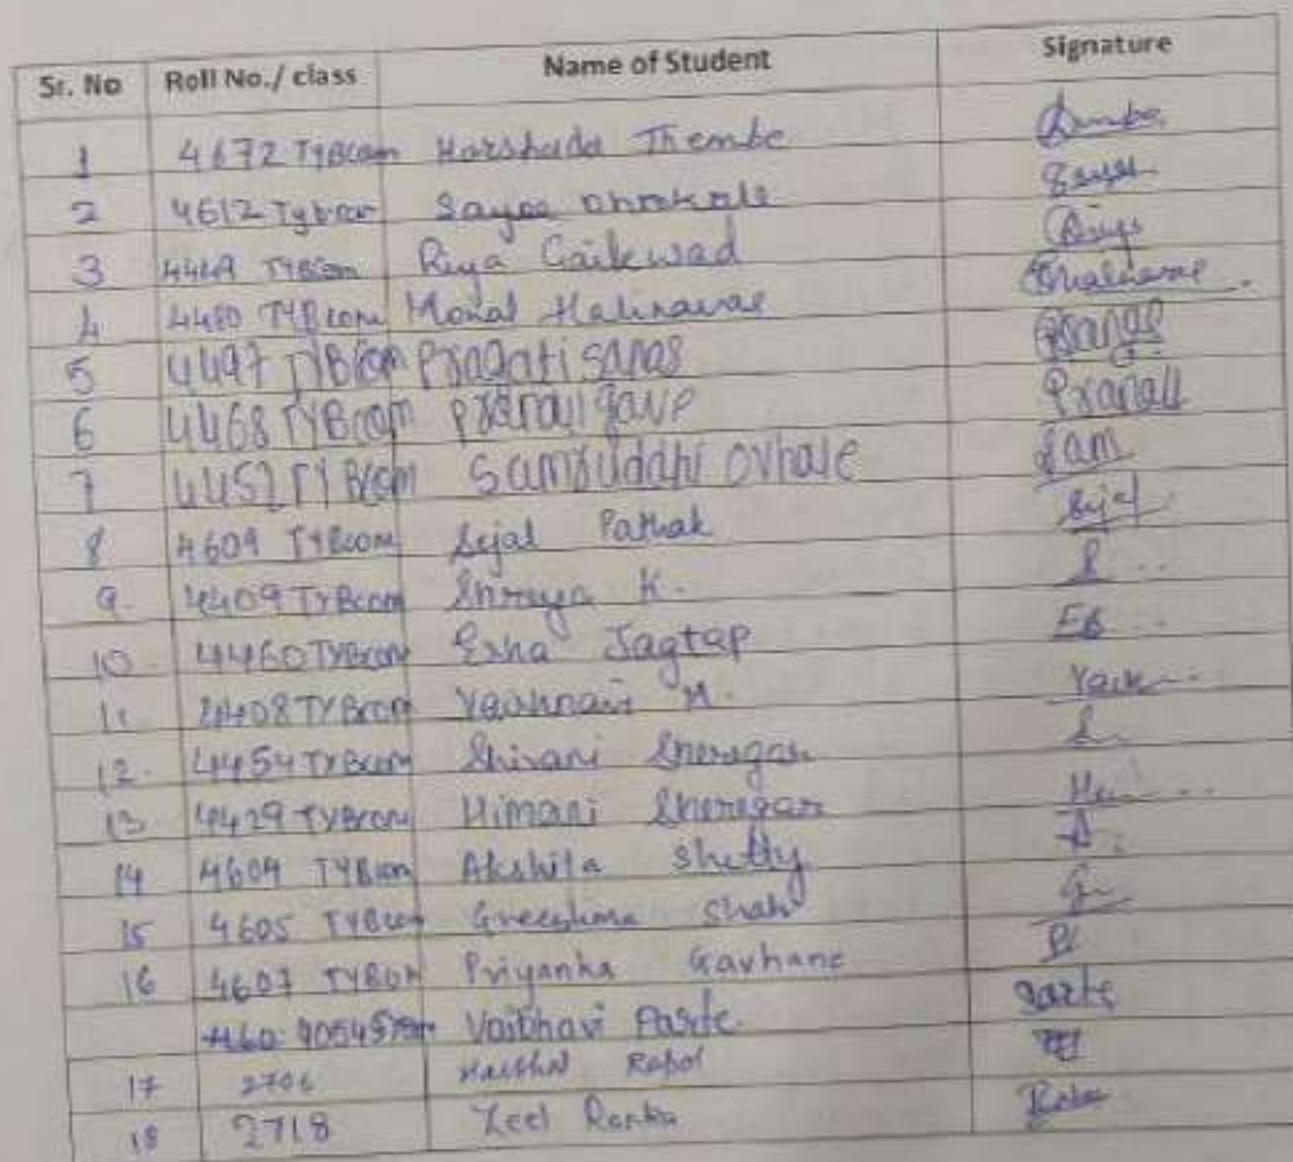 Sr. No Roll No./ class Name of Student Signature
1 4672 TYBcom Harshada Thembe
2 4612 Tybcom Sayee
3 4469 TYBcom Riya Gaikwad
4 4480 TYBcom Monal Halnavar
5 4497 TYBcom Pragati Sanas
6 4468 TYBcom Pranali gave Pranali
7 4452 TYBcom Samruddhi Ovhale Sam
8 4609 TYBcom Sejal Pathak Sejal
9. 4409 TYBcom Shreya K. S
10. 4460 TYBcom Esha Jagtap
11 4408 TYBcom Vaishnavi M.
12. 4454 TYBcom Shivani Sheregar
13 4429 TYBcom Himani Sheregar
14 4604 TYBcom Akshita Shetty A
15 4605 TYBcom Greeshma Shah
16 4607 TYBcom Priyanka Gavhane
Vaibhavi Parte.
17 2706 Harshal Rapol
18 2718 Zeel Ranka